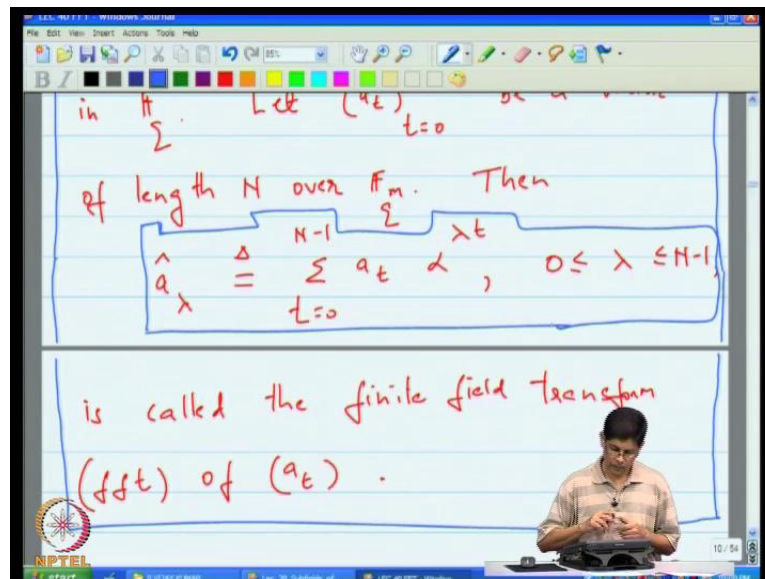 LEC 40 FFT - Windows Journal
File Edit View Insert Actions Tools Help
85%
B I
in F Let (a_t)
q t=0
of length N over F_{q^m}. Then
â_λ ≜ Σ_{t=0}^{N-1} a_t α^{λt}, 0 ≤ λ ≤ N-1,
is called the finite field transform
(fft) of (a_t).
NPTEL
10 / 54
start
LEC 40 FFT - Window